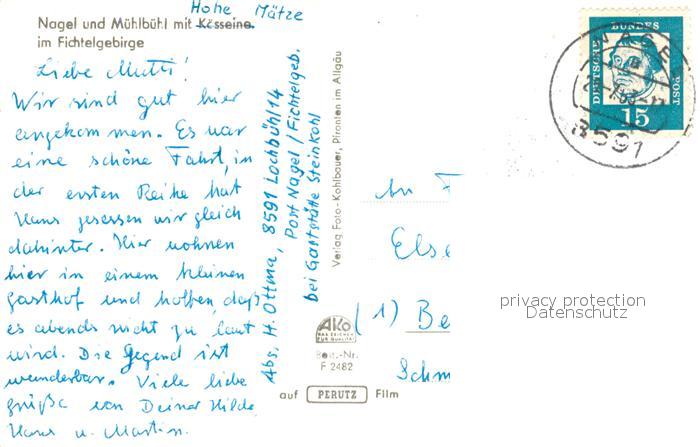 Hohe Mätze
Nagel und Mühlbühl mit Kösseine
im Fichtelgebirge
Liebe Mutti!
Wir sind gut hier
angekommen. Es war
eine schöne Fahrt, in
der ersten Reihe hat
Hans gesessen wir gleich
dahinter. Hier wohnen
wir in einem kleinen
Gasthof und hoffen, daß
es abends nicht zu laut
wird. Die Gegend ist
wunderbar. Viele liebe
Grüße von Deiner Hilde
Hans u. Martin.
Abs. H. Ottma, 8591 Lochbühl 14
Post Nagel / Fichtelgeb.
bei Gaststätte Steinkohl
Verlag Foto-Kohlbauer, Pfronten im Allgäu
AKO
DAS ZEICHEN
FÜR QUALITÄT
Best.-Nr.
F 2482
auf PERUTZ Film
An F
Else
(1) Be
Schm
DEUTSCHE
BUNDES
POST
15
NAGEL
8591
privacy protection
Datenschutz